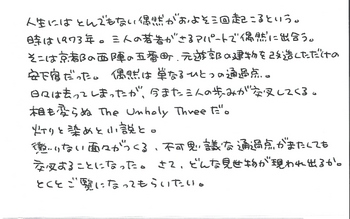 人生にはとんでもない偶然がおよそ三回起こるという。
時は1973年。三人の若者がさるアパートで偶然に出会う。
そこは京都の西陣の五番町、元遊郭の建物を改造しただけの
安下宿だった。偶然は単なるひとつの通過点。
日々は去ってしまったが、今また三人の歩みが交叉してくる。
相も変らぬ The Unholy Threeだ。
灯りと染めと小説と。
懲りない面々がつくる、不可思議な通過点がまたしても
交叉することになった。さて、どんな見世物が現われ出るか。
とくとご覧になってもらいたい。